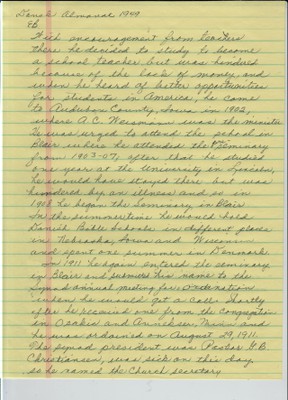 Dansk Almanak 1949
95.
With encouragement from teachers
there he decided to study to become
a school teacher but was hindered
because of the lack of money and
when he heard of better opportunities
for students in America, he came
to Audubon County, Iowa in 1902,
where A.C. Weismann was the minister
He was urged to attend the school in
Blair where he attended the Seminary
from 1903-07, after that he studied
one year at the University in Lincoln,
he would have stayed there but was
hindered by an illness and so in
1908 he began the Seminary in Blair
In the summertime he would hold
Danish Bible Schools in different places
in Nebraska, Iowa and Wisconsin
and spent one summer in Denmark
In 1911 he again entered the seminary
in Blair and submits his name to the
Synod annual meeting for ordination
when he would get a call. Shortly
after he received one from the congregation
in Osakis and Annekser, Minn and
he was ordained on August 29, 1911.
The synod president was Pastor G.B.
Christiansen, was sick on this day
so he named the Church secretary